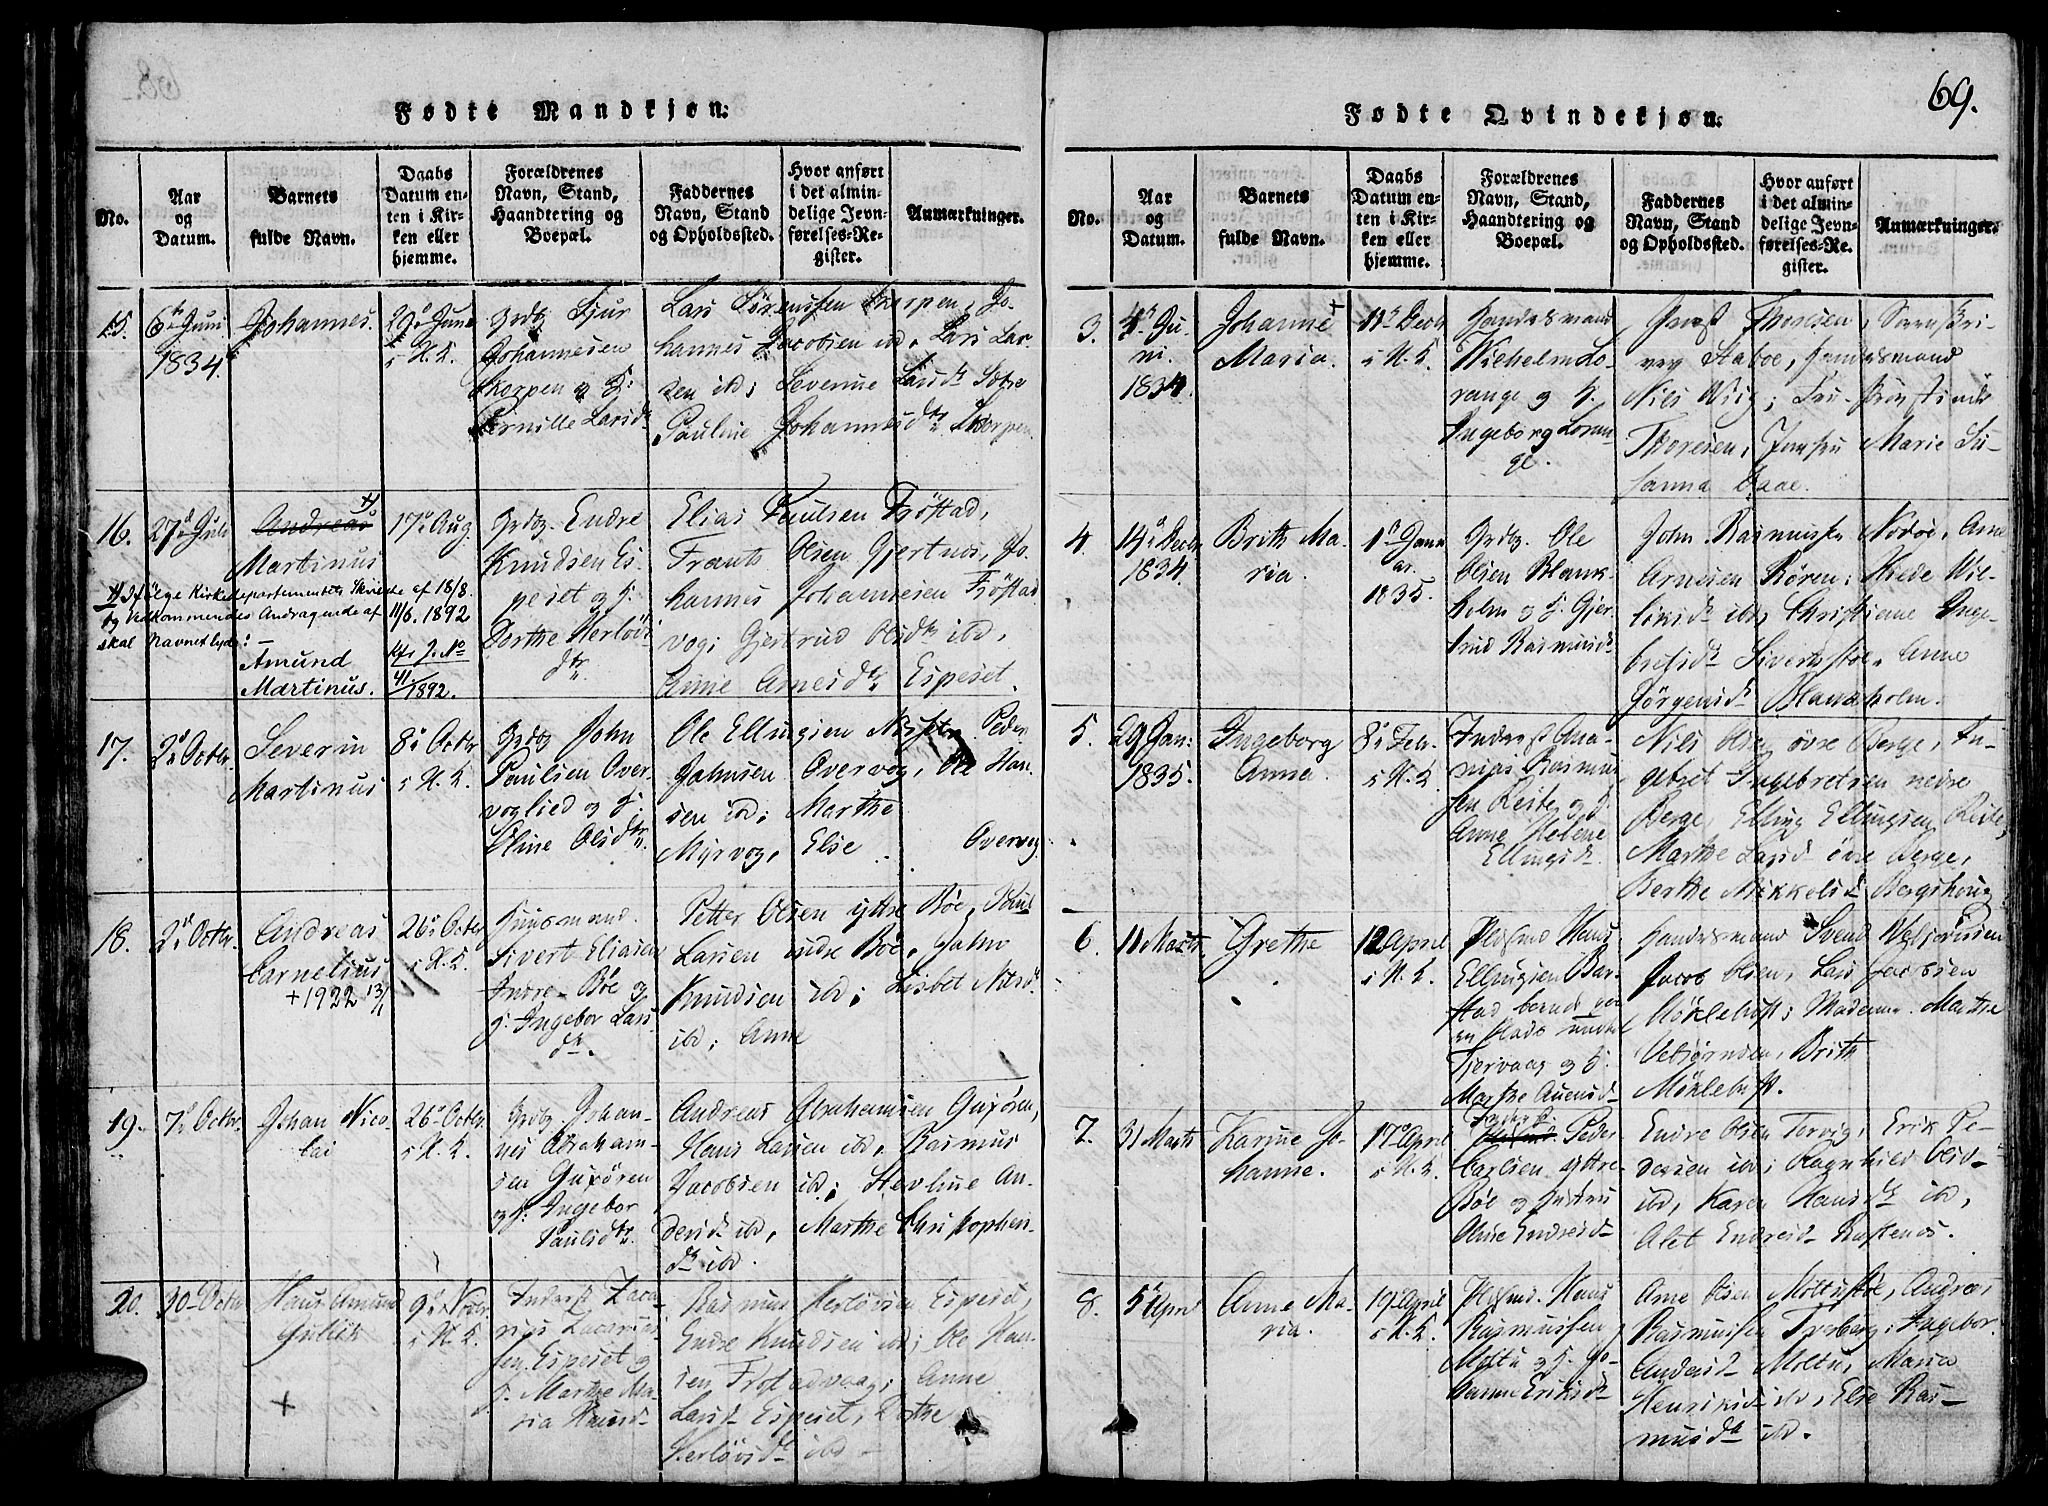 69.
Fødte Mandkjøn:
No.
Aar og Datum.
Barnets fulde Navn.
Daabs Datum enten i Kirken eller hjemme.
Forældrenes Navn, Stand, Haandtering og Boepæl.
Faddernes Navn, Stand og Opholdssted.
Hvor anført i det almindelige Jevnførelses-Register.
Anmærkninger.
15.
6te Juni
1834.
Johannes.
29 Juni
i H. K.
Grdbg Sjur
Johannesen
Skorpen og H:
Pernille Larsdtr
Lars Sørenssen Skorpen, Jo-
hannes Jacobsen ibd, Lars Lar-
sen ibd; Severine Larsdtr Sætre
Pauline Johannesdtr Skorpen
16.
27d Juli
Andreas
Martinus
17d Aug.
Grdbg. Endre
Knudsen Es-
peset og H:
Dorthe Herløvs
dtr.
Elias Paulsen Frøstad,
Frants Olsen Gjertnes, Jo-
hannes Johannesen Frøstad
vog; Gjertrud Olsdtr ibd,
Anne Arnesdtr Espeset.
Ifølge Kirkedepartementets Skrivelse af 18/8.
og Vedkommendes Andragende af 11/6. 1892
skal Navnet lyde: -
Amund
Martinus.
kfr J. No
41/1892.
17.
2d Octbr.
Severin
Martinus
8d Octbr
i H. K.
Grdbg John
Paulsen Over-
voglied og H:
Oline Olsdtr.
Ole Ellingsen
Peder
Johnsen Overvog, Ole Han-
sen ibd; Marthe
Myrvog, Else
Overvog.
18.
2d Octbr.
Andreas
Cornelius
+ 1922 13/11
26d Octbr
i H. K.
Huusmand.
Sivert Eliasen
Indre Bøe og
H. Ingebor Lars
dtr.
Petter Olsen yttre Bøe, Poul
Larsen indre Bøe, John
Knudsen ibd; Lisbet
ibd; Anne
19.
7d Octbr.
Johan Nico-
lai
26d Octbr
i H. K.
Grdbg Johan-
nes Abraham-
sen Guxören
og H: Ingebor
Paulsdtr.
Andreas Abrahamsen Guxören,
Hans Larsen ibd, Rasmus
Jacobsen ibd; Stevline An-
dersdtr ibd, Marthe Christophers-
dtr ibd.
20.
30 Octbr
Hans Amund
Gulick
+
9d Novbr
i H. K.
Inderst Zaca-
rias Zacarias-
sen Espeset og
H. Marthe Ma-
ria Hansd-
Rasmus Herløvsen Espeset,
Endre Knudsen ibd; Ole Han-
sen Frøstadvaag; Anne
Larsd- Espeset, Dorthe
Herløvsdtr ibd -
Fødte Qvindekjøn:
No.
Aar og Datum.
Barnets fulde Navn.
Daabs Datum enten i Kirken eller hjemme.
Forældrenes Navn, Stand, Haandtering og Boepæl.
Faddernes Navn, Stand og Opholdssted.
Hvor anført i det almindelige Jevnførelses-Register.
Anmærkninger.
3.
4d Ju-
ni.
1834.
Johanne +
Maria.
11d Decbr
i H. K.
Handelsmand
Wilhelm Lo-
range og H.
Ingeborg Loran-
ge.
Provst Thoresen, Sorenskri-
ver Staboe, Handelsmand
Niels Wiig; Fru Christine
Thoresen, Jomfru Marie Su-
sanna Daae.
4.
14d Decbr
1834.
Brith Ma-
ria.
1d Janu
ar.
1835.
Grdbg. Ole
Olsen Blank-
holm og H. Gjer
trud Rasmusd-
John Rasmussen Nodøe, Arne
Arnesen Røren;
ibd, Christiane Inge-
bretsdtr Sivertstøe, Anne
Jørgensdtr Blankholm.
5.
29 Jan:
1835.
Ingeborg
Anne.
8d Febr.
i H. K.
Inderst Ana-
nias Rasmus
sen Reite og H.
Anne Helene
Ellingsdtr.
Niels Olsen övre Berge, In-
gebret Ingebretsen nedre
Berge, Elling Ellingsen Reite,
Marthe Larsd övre Berge,
Berthe Mikkelsdtr Bergshoug
6.
11 Marts
Grethe
12 April
i H. K.
Pldsmd Hans
Ellingsen Bar-
stad
en Plads under
Tjervaag og H.
Marthe
Handelsmand Svend Vebjørnsen
Jacob Olsen, Lars Jacobsen
Møklebust; Madame Marthe
Vebjørnsen, Brith
Møklebust.
7.
31 Marts
Karine Jo-
hanne.
17d April
i H. K.
Inderst
Peder
Carlsen yttre
Bøe og Hustru
Oline Endresd-
Endre Olsen Tervig, Erik Pe-
dersen ibd; Ragnhild Olsd-
ibd, Karen Hansdtr ibd,
Alet Endresd-
8.
5d April
Anne Ma-
ria.
19d April
i H. K.
Pldsmd. Hans
Rasmussen
Moltu og H. Jo-
hanne Eriksdtr
Arne Olsen Moltustøe, Andreas
Rasmussen Tverberg, Ingebor
Andersd- Moltu, Maria
Henriksd- ibd, Else Ras-
musdtr ibd.